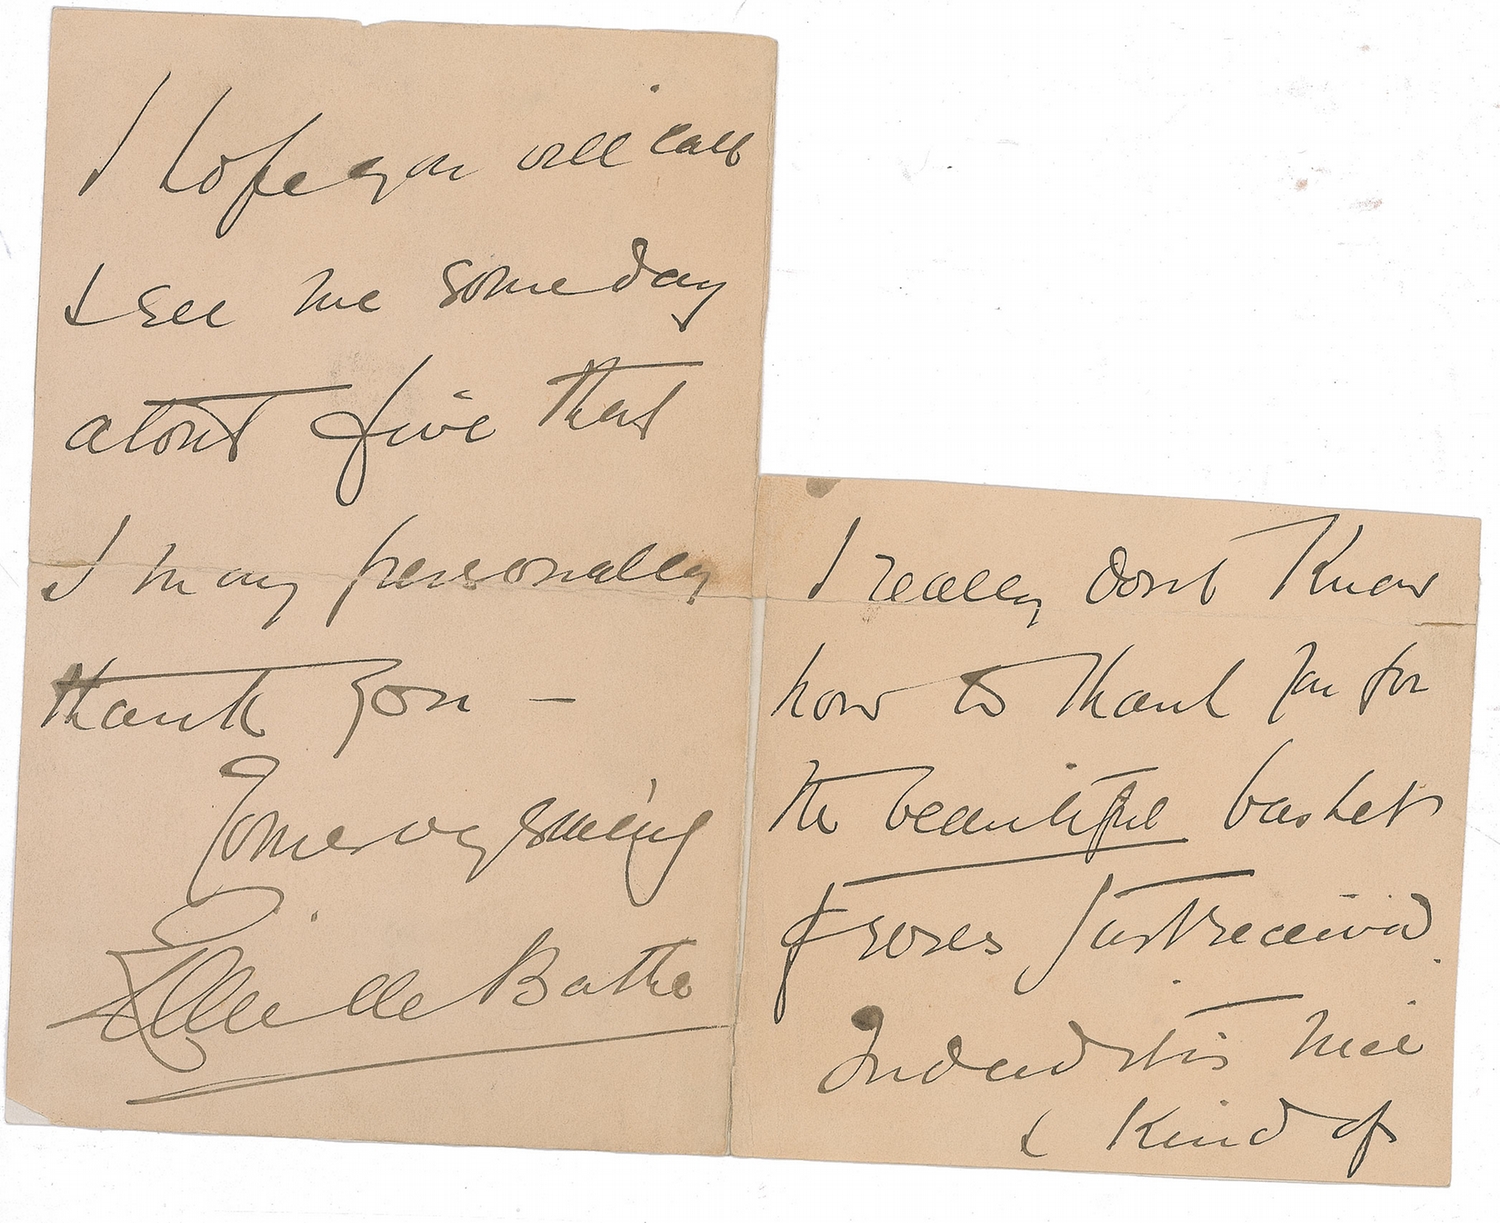 I really don't know
how to thank you for
the beautiful basket
of roses just received.
Indeed it is nice
& kind of
I hope you will call
& see me some day
about five that
I may personally
thank you —
Yours very sincerely